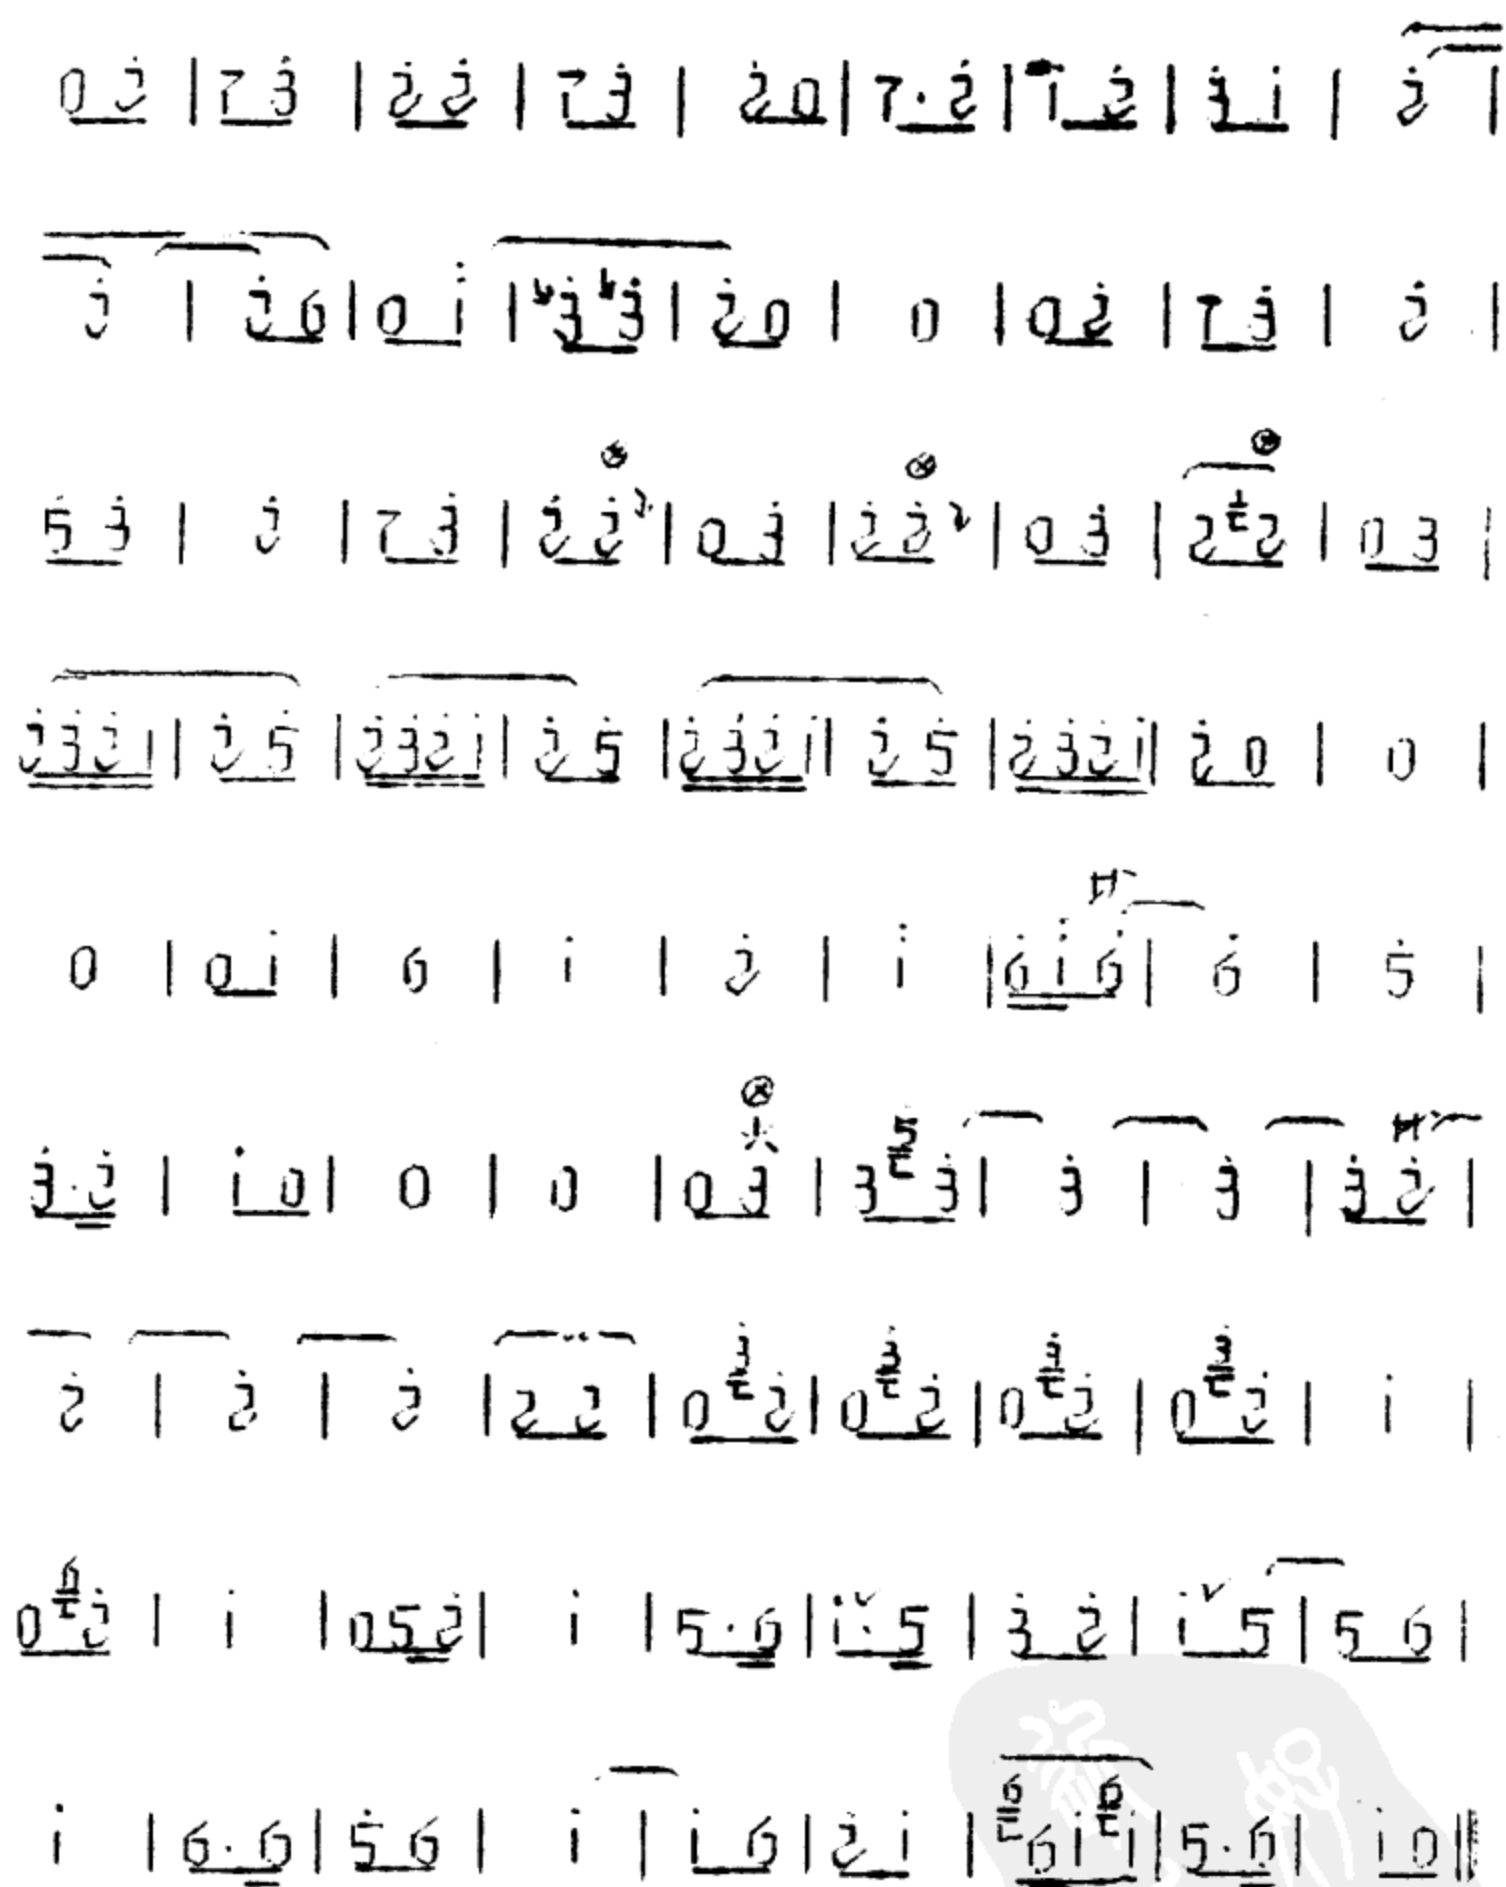 0 2̇ | 7 3̇ | 2̇ 2̇ | 7 3̇ | 2̇ 0 | 7 · 2̇ | 1̇ 2̇ | 3̇ 1̇ | 2̇ |
2̇ | 2̇ 6 | 0 1̇ | 3̇ 3̇ | 2̇ 0 | 0 | 0 2̇ | 7 3̇ | 2̇ |
5̇ 3̇ | 2̇ | 7 3̇ | 2̇ 2̇ | 0 3̇ | 2̇ 2̇ | 0 3̇ | 2 2 | 0 3 |
2̇ 3̇ 2̇ 1 | 2̇ 5̇ | 2̇ 3̇ 2̇ 1̇ | 2̇ 5̇ | 2̇ 3̇ 2̇ 1̇ | 2̇ 5̇ | 2̇ 3̇ 2̇ 1̇ | 2̇ 0 | 0 |
0 | 0 1̇ | 6 | 1̇ | 2̇ | 1̇ | 6̇ 1̇ 6̇ | 6̇ | 5̇ |
3̇ · 2̇ | 1̇ 0 | 0 | 0 | 0 3̇ | 3 5̇ 3̇ | 3̇ | 3̇ | 3̇ 2̇ |
2̇ | 2̇ | 2̇ | 2 2̇ | 0 3̇ 2̇ | 0 3̇ 2̇ | 0 3̇ 2̇ | 0 3̇ 2̇ | 1̇ |
0 6 2̇ | 1̇ | 0 5 2̇ | 1̇ | 5 · 6 | 1̇ · 5 | 3̇ 2̇ | 1̇ 5 | 5 6 |
1̇ | 6 · 6 | 5 6 | 1̇ | 1̇ 6 | 2̇ 1̇ | 6 6 1̇ 6 1̇ | 5 · 6 | 1̇ 0 ‖